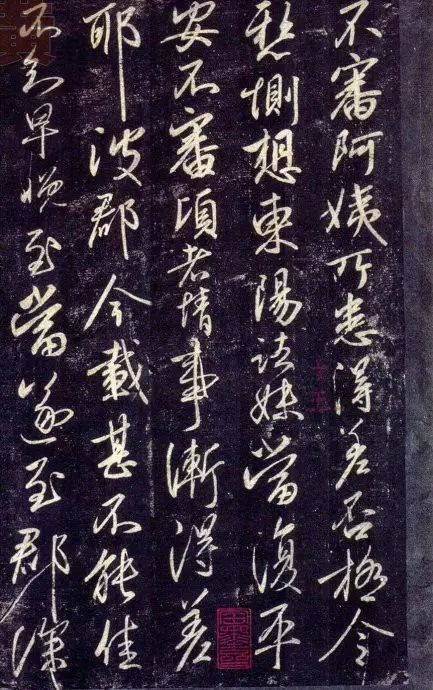 不審阿姨所患得差否極令
惻想東陽諸妹當復平
安不審頃者情事漸得差
耶波郡今載甚不能佳
不知早晚至當遂至郡深